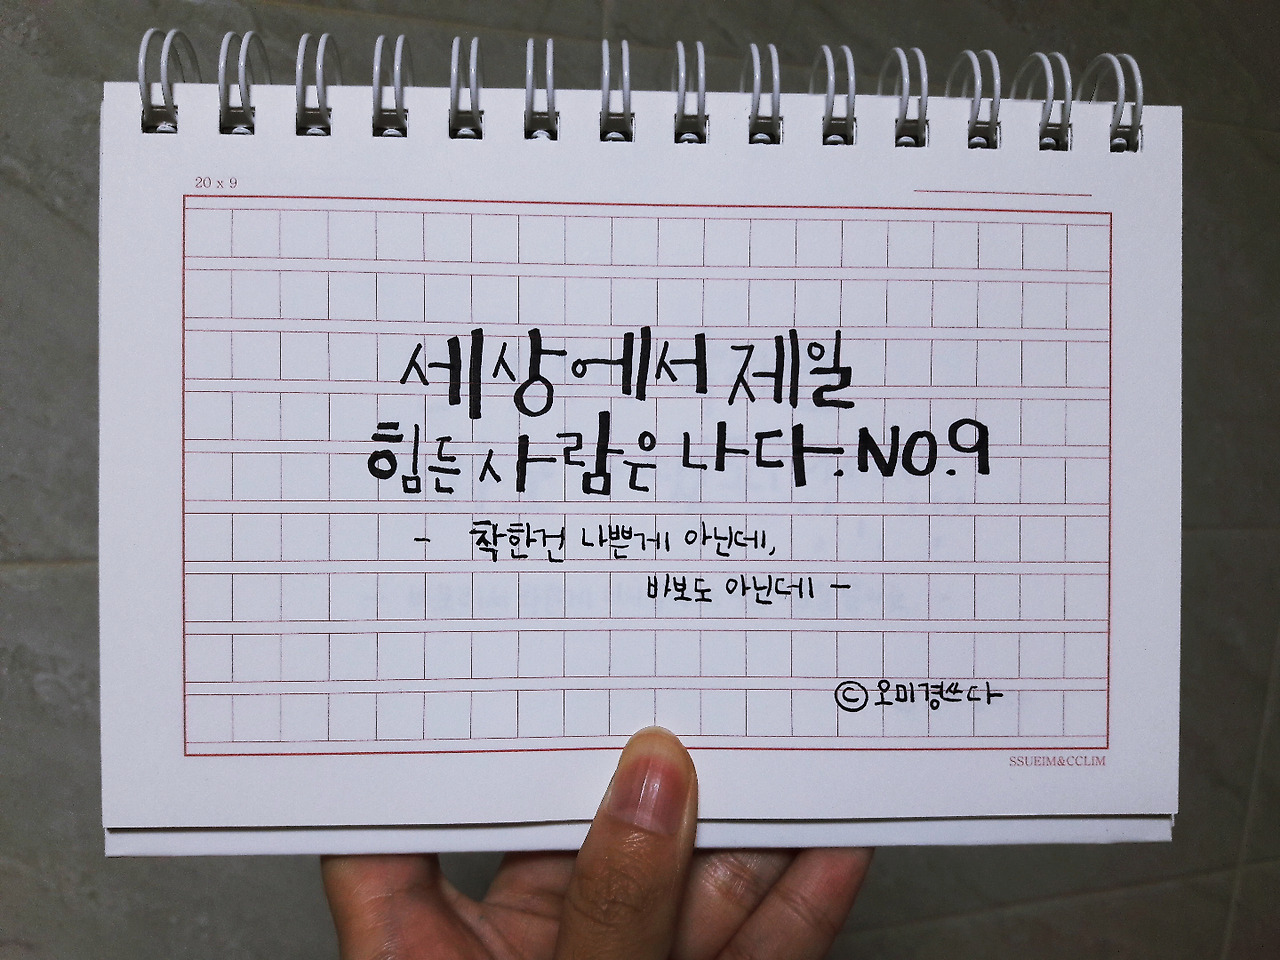 20 x 9
세상에서 제일
힘든 사람은 나다. NO.9
- 착한건 나쁜게 아닌데,
바보도 아닌데 -
© 오미경쓰다
SSUEIM&CCLIM